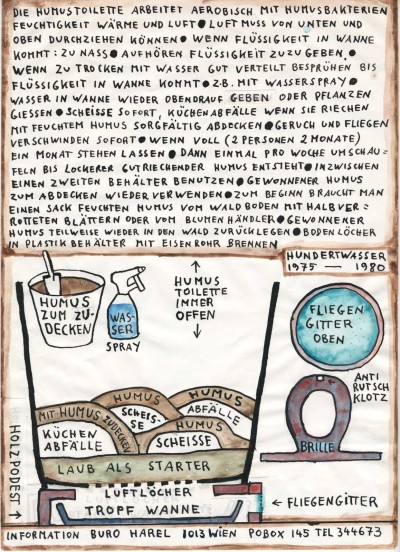 DIE HUMUSTOILETTE ARBEITET AEROBISCH MIT HUMUSBAKTERIEN
FEUCHTIGKEIT WÄRME UND LUFT ● LUFT MUSS VON UNTEN UND
OBEN DURCHZIEHEN KÖNNEN ● WENN FLÜSSIGKEIT IN WANNE
KOMMT: ZU NASS ● AUFHÖREN FLÜSSIGKEIT ZUZU GEBEN. ●
WENN ZU TROCKEN MIT WASSER GUT VERTEILT BESPRÜHEN BIS
FLÜSSIGKEIT IN WANNE KOMMT ● Z.B. MIT WASSERSPRAY ●
WASSER IN WANNE WIEDER OBENDRAUF GEBEN ODER PFLANZEN
GIESSEN ● SCHEISSE SOFORT, KÜCHENABFÄLLE WENN SIE RIECHEN
MIT FEUCHTEM HUMUS SORGFÄLTIG ABDECKEN ● GERUCH UND FLIEGEN
VERSCHWINDEN SOFORT ● WENN VOLL (2 PERSONEN 2 MONATE)
EIN MONAT STEHEN LASSEN ● DANN EINMAL PRO WOCHE UMSCHAU=
FELN BIS LOCKERER GUTRIECHENDER HUMUS ENTSTEHT ● INZWISCHEN
EINEN ZWEITEN BEHÄLTER BENUTZEN ● GEWONNENER HUMUS
ZUM ABDECKEN WIEDER VERWENDEN ● ZUM BEGINN BRAUCHT MAN
EINEN SACK FEUCHTEN HUMUS VOM WALD BODEN MIT HALBVER=
ROTTETEN BLÄTTERN ODER VOM BLUMEN HÄNDLER ● GEWONNENER
HUMUS TEILWEISE WIEDER IN DEN WALD ZURÜCKLEGEN ● BODEN LÖCHER
IN PLASTIK BEHÄLTER MIT EISEN ROHR BRENNEN
HUNDERTWASSER
1975 — 1980
HUMUS
ZUM ZU-
DECKEN
WAS-
SER
SPRAY
HUMUS
TOILETTE
IMMER
OFFEN
FLIEGEN
GITTER
OBEN
ANTI
RUTSCH
KLOTZ
BRILLE
HUMUS
HUMUS
ABFÄLLE
MIT HUMUS ZUDECKEN
SCHEIS-
SE
HUMUS
KÜCHEN
ABFÄLLE
SCHEISSE
LAUB ALS STARTER
HOLZ PODEST →
LUFTLÖCHER
TROPF WANNE
← FLIEGENGITTER
INFORMATION BURO HAREL 1013 WIEN POBOX 145 TEL 344673